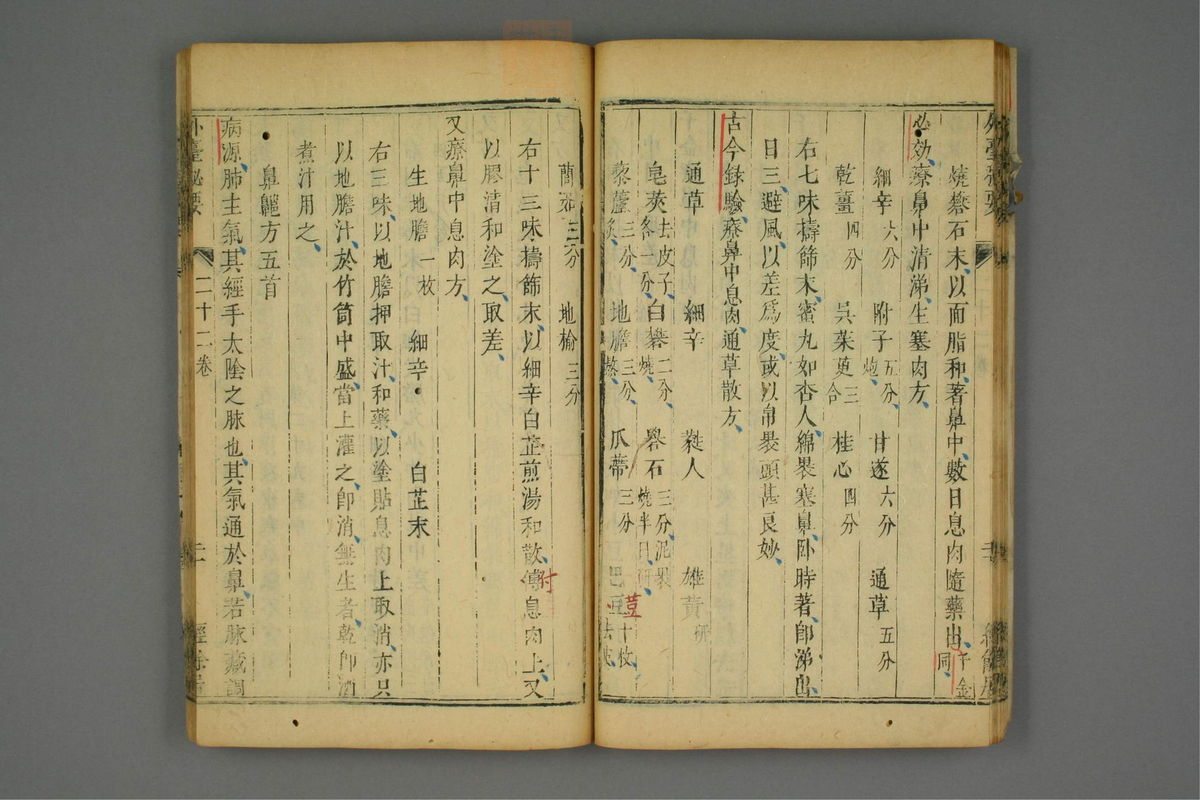 燒礬石末以面脂和著鼻中數日息肉隨藥出千金同
必効療鼻中清涕生塞肉方
細辛六分 附子五分炮 甘遂六分 通草五分
乾薑四分 吳茱萸三合 桂心四分
右七味擣篩末蜜丸如杏人綿裹塞鼻卧時著即涕出
日三避風以差爲度或以帛裹頭甚良妙
古今録驗療鼻中息肉通草散方
通草 細辛 蕤人 雄黄研
皂莢去皮子各一分 白礬二分燒 礜石三分泥裹燒半日研
藜蘆三分炙 地膽三分熬 瓜蒂三分 巴豆十枚去皮
荳
䕡茹三分 地榆三分
右十三味擣篩末以細辛白芷煎湯和散傳息肉上又
付
以膠清和塗之取差
又療鼻中息肉方
生地膽一枚 細辛 白芷末
右三味以地膽押取汁和藥以塗貼息肉上取消亦只
以地膽汁於竹筒中盛當上灌之即消無生者乾即酒
煮汁用之
鼻齆方五首
病源肺主氣其經手太陰之脉也其氣通於鼻若脉藏調
外臺秘要 二十二卷